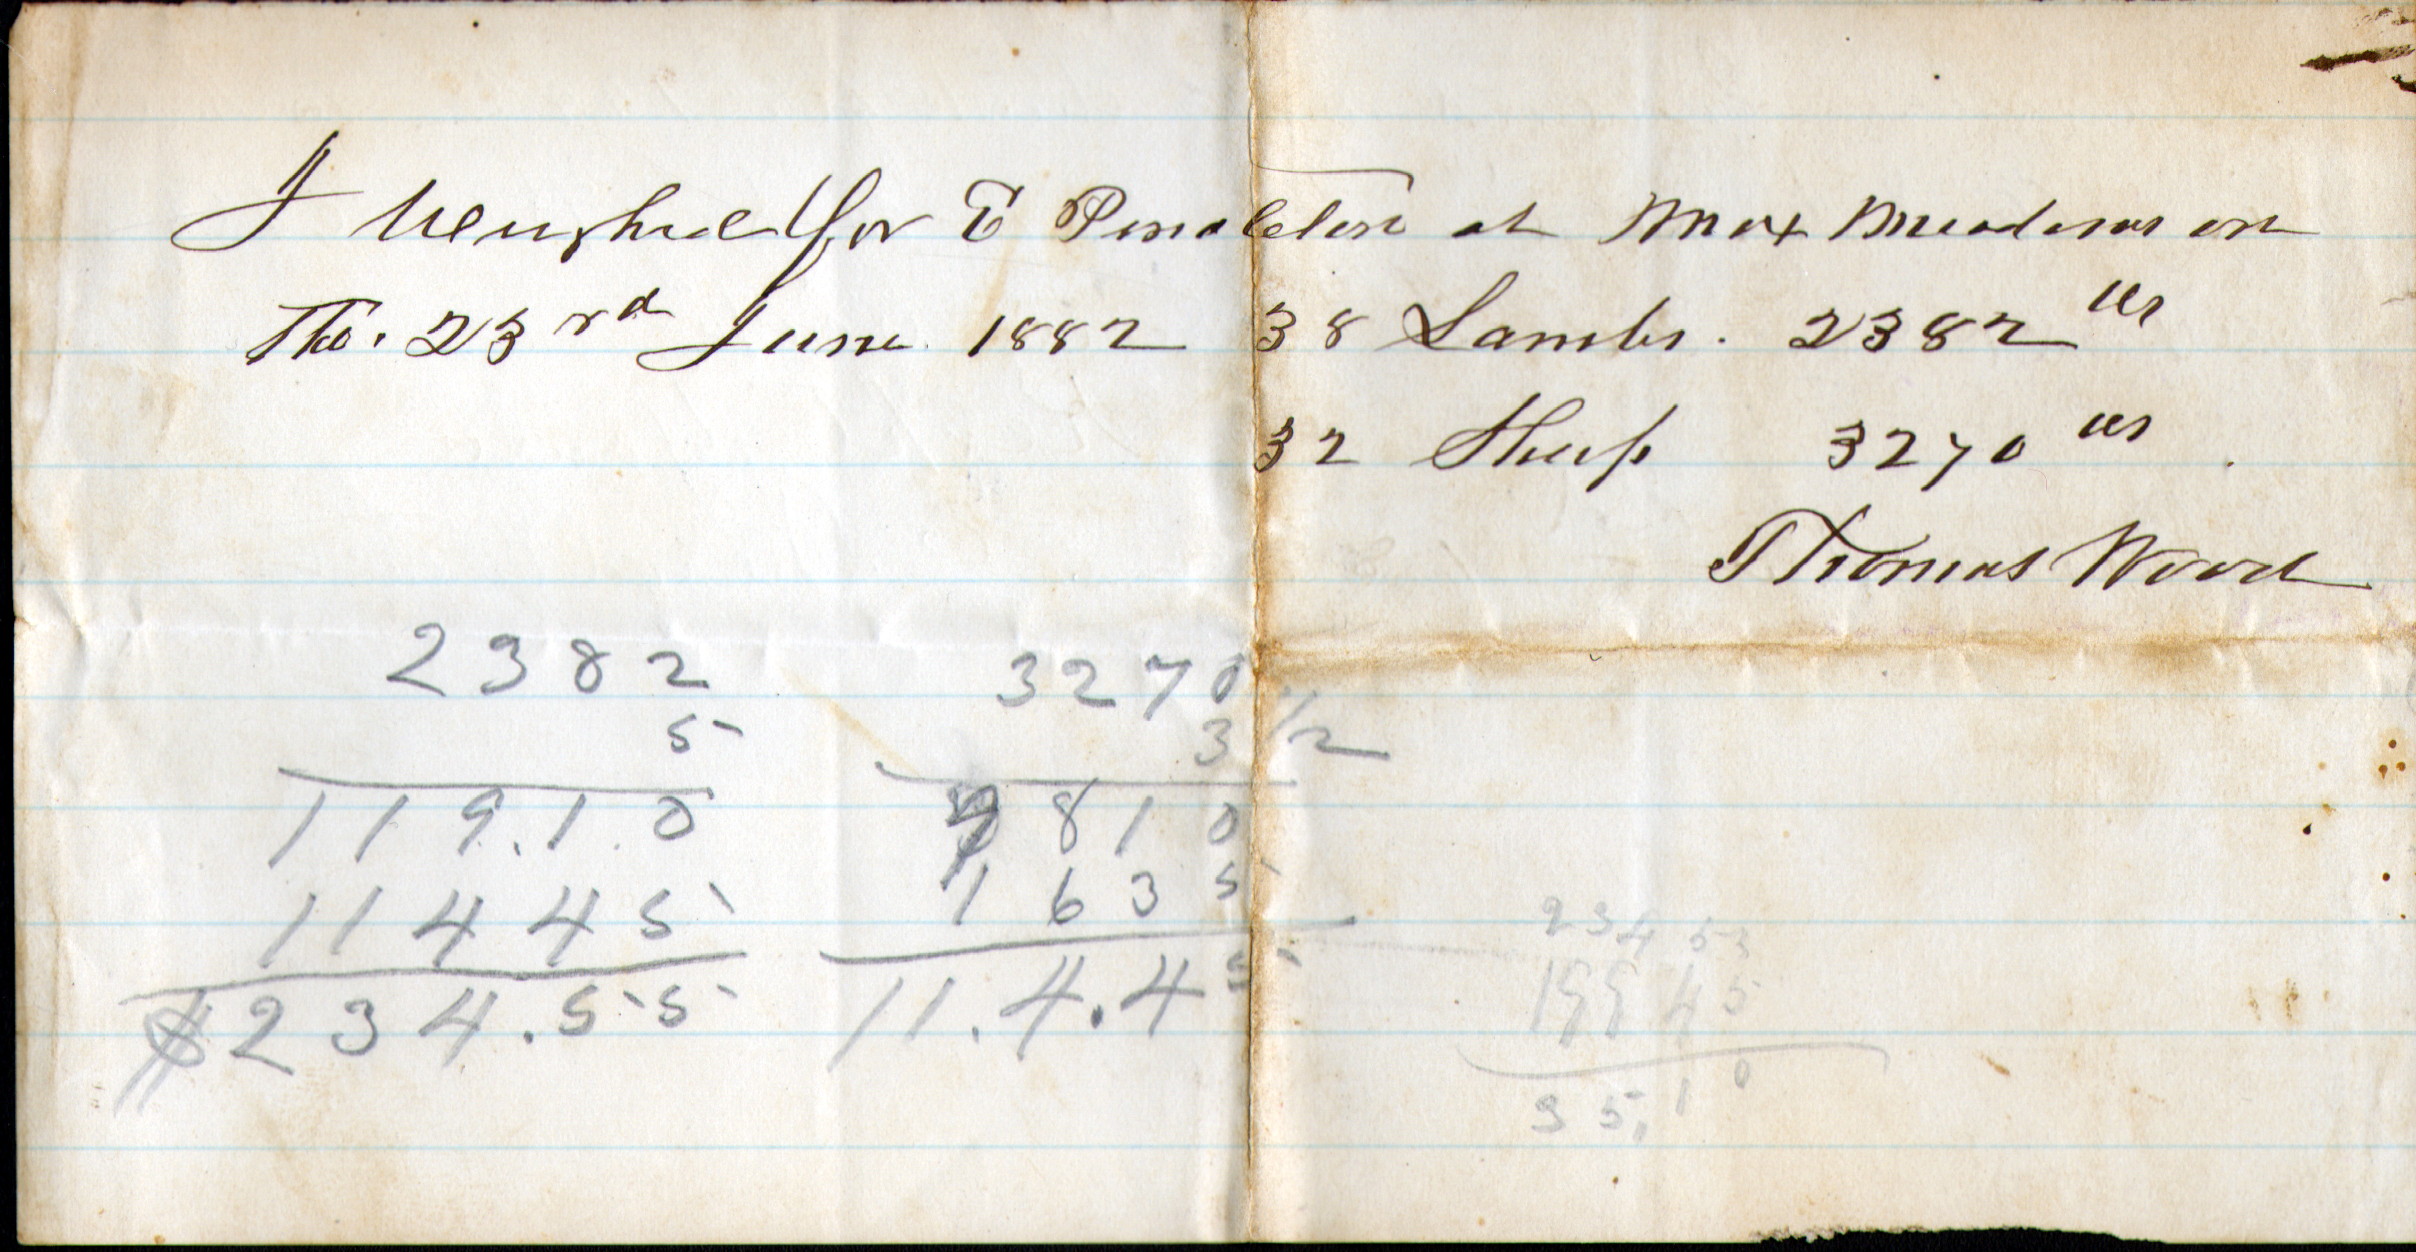 I Weighed for E Pendleton at Max Meadows on
The. 23rd June. 1882 38 Lambs. 2382 lbs
32 Sheep 3270 lbs.
Thomas Wood
2382
5
119.10
11445
$234.55
3270
3 1/2
9810
1635
11.4.45
23453
19945
35.10